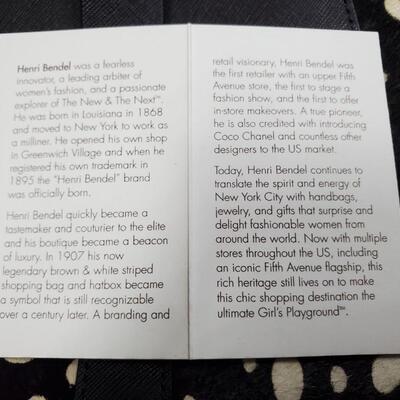 Henri Bendel was a fearless
innovator, a leading arbiter of
women's fashion, and a passionate
explorer of The New & The Next™.
He was born in Louisiana in 1868
and moved to New York to work as
a milliner. He opened his own shop
in Greenwich Village and when he
registered his own trademark in
1895 the "Henri Bendel" brand
was officially born.
Henri Bendel quickly became a
tastemaker and couturier to the elite
and his boutique became a beacon
of luxury. In 1907 his now
legendary brown & white striped
shopping bag and hatbox became
a symbol that is still recognizable
over a century later. A branding and
retail visionary, Henri Bendel was
the first retailer with an upper Fifth
Avenue store, the first to stage a
fashion show, and the first to offer
in-store makeovers. A true pioneer,
he is also credited with introducing
Coco Chanel and countless other
designers to the US market.
Today, Henri Bendel continues to
translate the spirit and energy of
New York City with handbags,
jewelry, and gifts that surprise and
delight fashionable women from
around the world. Now with multiple
stores throughout the US, including
an iconic Fifth Avenue flagship, this
rich heritage still lives on to make
this chic shopping destination the
ultimate Girl's Playground™.